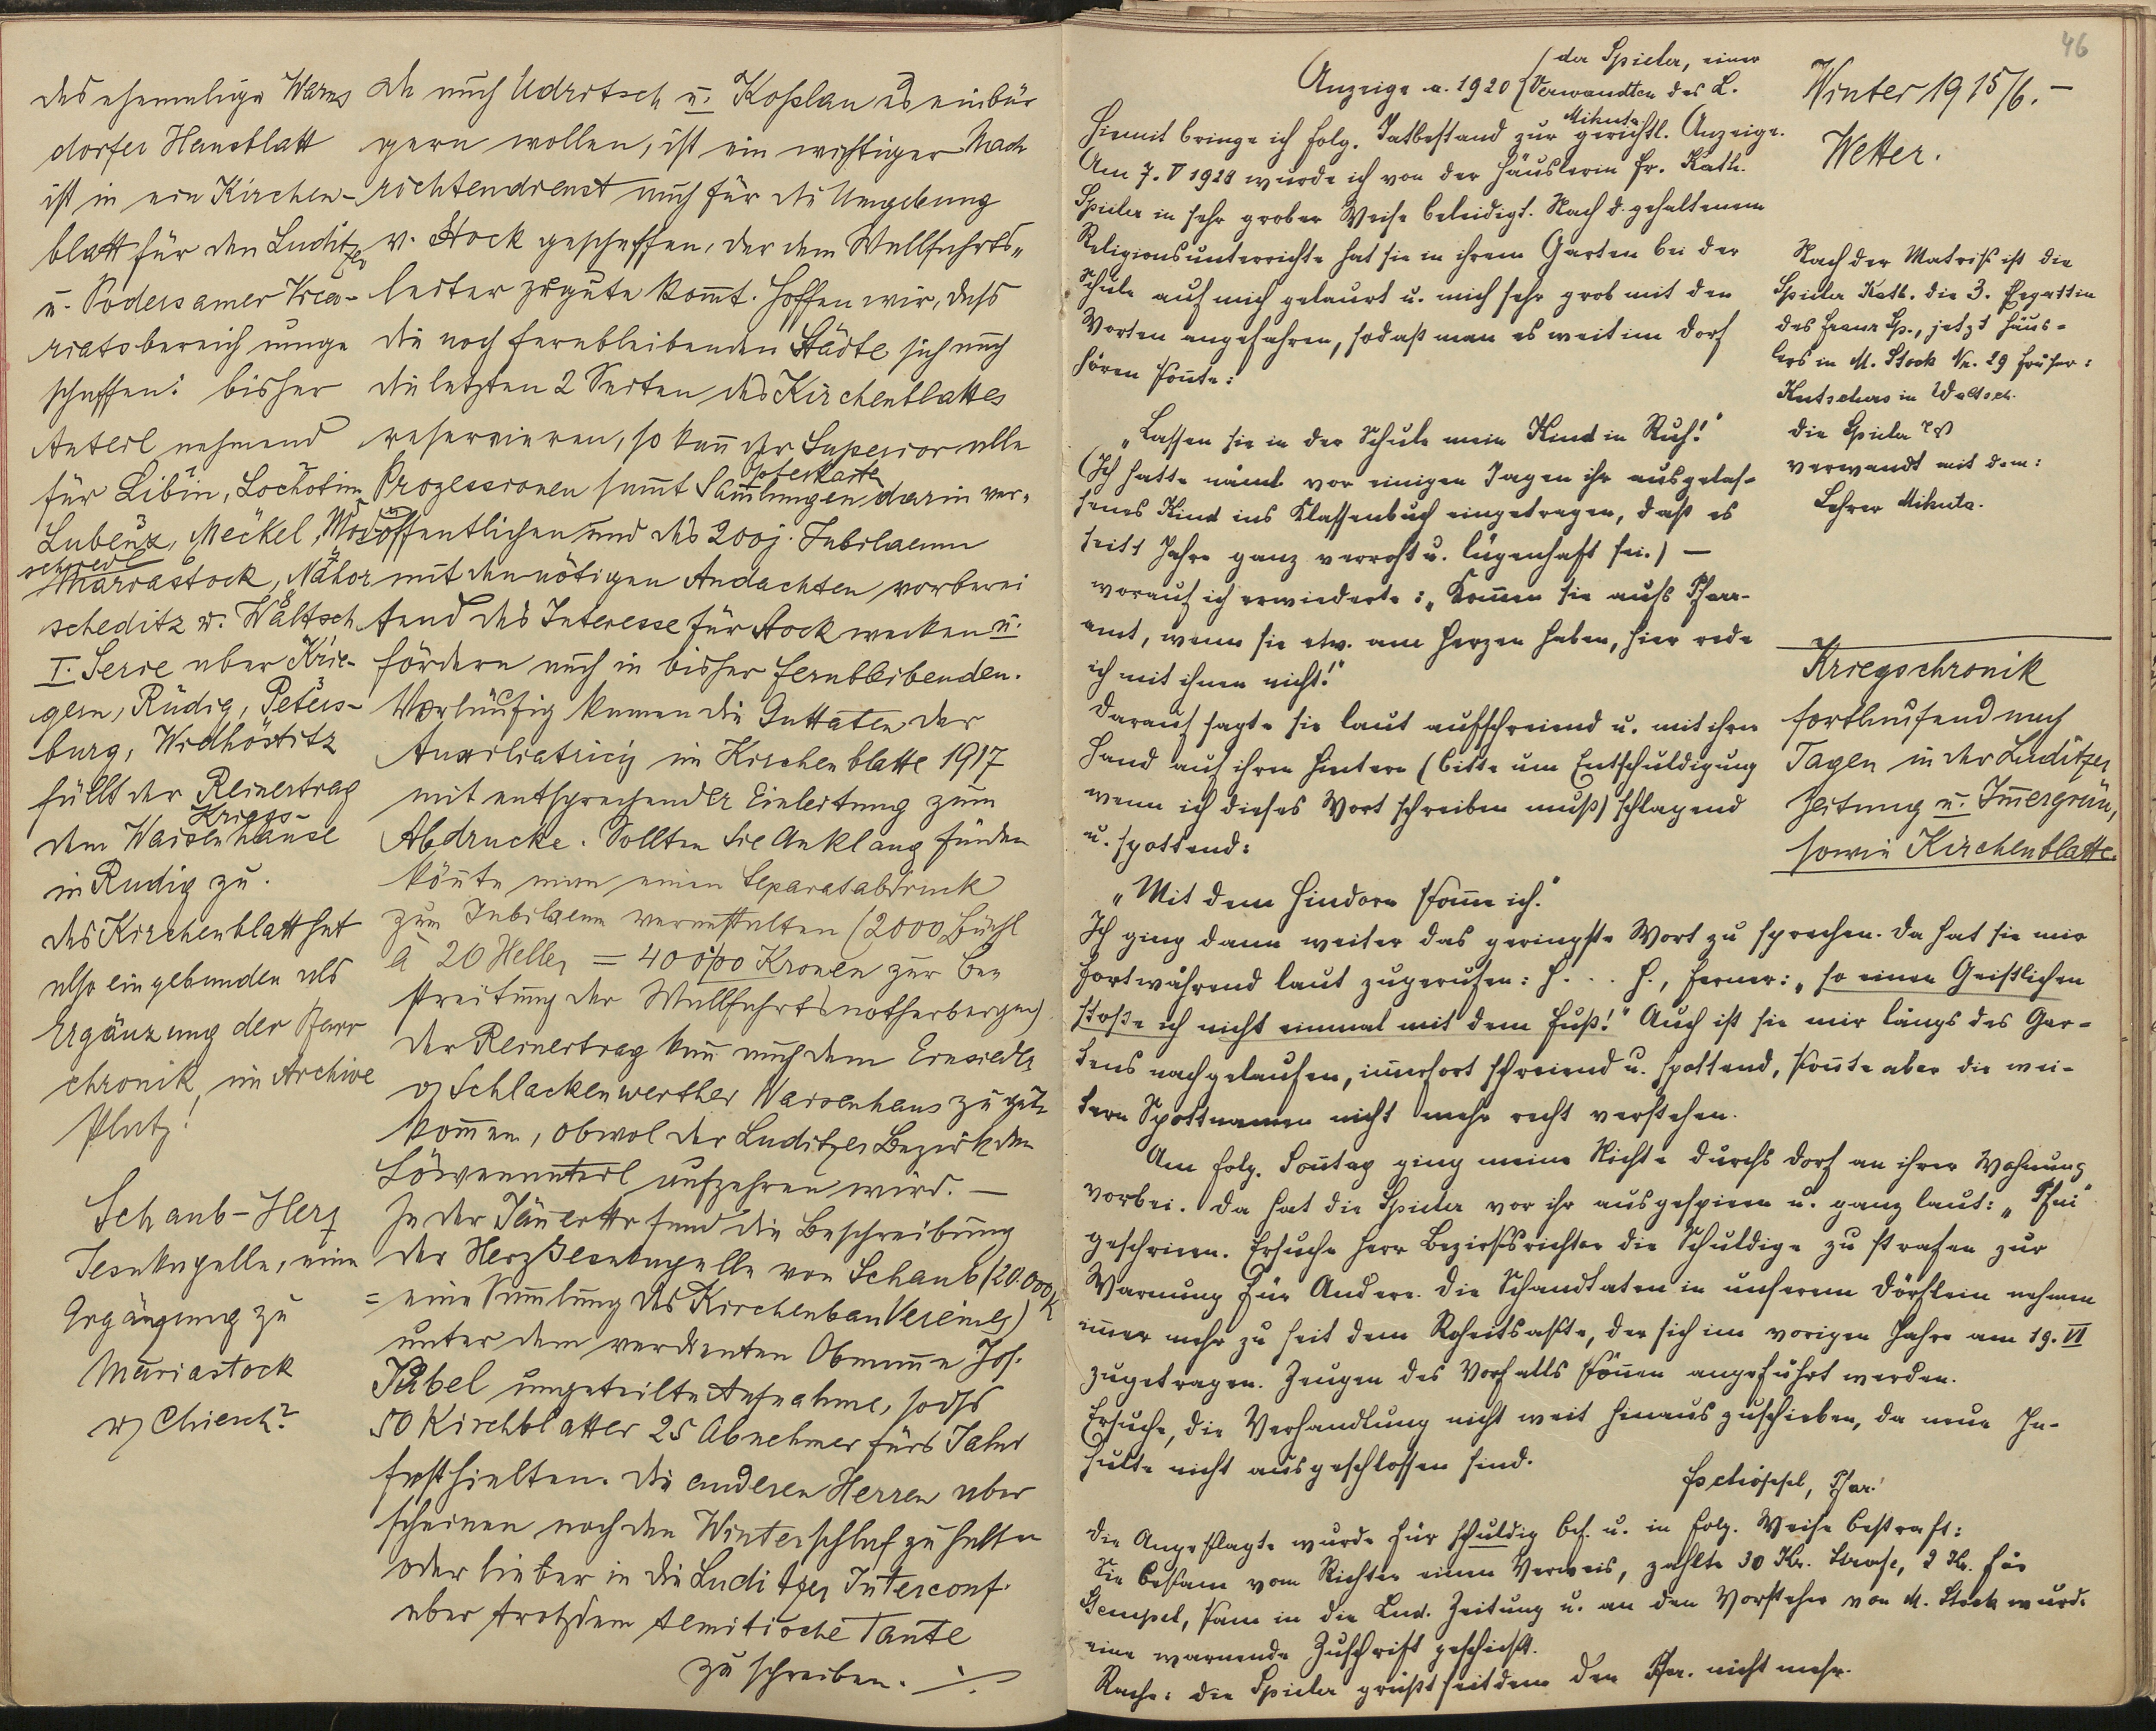 des ehemalige Warns
dorfer Hausblatt
ist in ein Kirchen-
blatt für den Luditzer
u. Podersamer Vica-
riatsbereich umge
schaffen: bisher
Anteil nehmend
für Libin, Lochotin,
Lubenz, Meckel, Mod
schiedl
Mariastock, Nahor
scheditz u. Waltsch
I. Serie aber Krie-
gern, Rudig, Peters-
burg, Widhostitz
füllt der Reinertrag
Kriegs-
dem Waisenhause
in Rudig zu.
das Kirchenblatt hat
also eingebunden als
Ergänzung der Pfarr
chronik im Archive
Platz!
Schaub-Herz
Jesukapelle, eine
Ergänzung zu
Mariastock
u. Chiesch?
da auch Udritsch u. Koslau es einbür
gern wollen, ist ein wichtiger Nach
richtendienst auch für die Umgebung
v. Stock geschaffen, der dem Wallfahrts-
leiter zugute komt. Hoffen wir, dass
die noch fernbleibenden Städte sich auch
die letzten 2 Seiten des Kirchenblattes
reservieren, so kan der Superior alle
Opferkarte
Prozessionen samt Samlungen darin ver-
öffentlichen und das 200j. Jubilaeum
mit den nötigen Andachten vorberei
tend das Interesse für Stock wecken u.
fördern auch in bisher fernbleibenden.
Vorläufig kamen die Guttaten der
Auxiliatricis im Kirchenblatte 1917
mit entsprechender Einleitung zum
Abdrucke. Sollten sie Anklang finden
könte man einen Separatabdruck
zum Jubilaeum veranstalten (2000 Büchl
à 20 Heller = 400/00 Kronen zur Be
streitung der Wallfahrtsnotherbergen)
der Reinertrag kan auch dem
v. Schlackenwerther Waisenhaus zu gute
kommen, obwol der Luditzer Bezirk den
Löwenanteil aufzehren wird. —
In der Jänner Nr fand die Beschreibung
der Herz Jesukapelle von Schaub (20.000 K
= eine Samlung des Kirchenbau Vereines)
unter dem verdienten Obmanne Jos.
Pabel ungeteilte Aufnahme, sodss
50 Kirchblatter 25 Abnehmer fürs Jahr
festhielten. die anderen Herren aber
scheinen noch den Winterschlaf zu halten
oder lieber in die Luditzer Interconf.
aber trotzdem semitische Tante
zu schreiben. ./.
46
der Spieler, einer
Anzeige a. 1920 Verwandten des L.
Mikuta
Hiemit bringe ich folg. Tatbestand zur gerichtl. Anzeige.
Am 7. V 1920 wurde ich von der Häuslerin Fr. Kath.
Spieler in sehr grober Weise beleidigt. Nach d. gehaltenem
Religionsunterrichte hat sie in ihrem Garten bei der
Schule auf mich gelauert u. mich sehr grob mit den
Worten angefahren, sodaß man es weit im Dorf
hören konte:
„Lassen sie in der Schule mein Kind in Ruh!"
(Ich hatte näml. vor einigen Tagen ihr ausgelas-
senes Kind ins Klassenbuch eingetragen, daß es
seit 1 Jahre ganz verroht u. lügenhaft sei.) —
worauf ich erwiederte: „Komen sie aufs Pfarr-
amt, wenn sie etw. am Herzen haben, hier rede
ich mit ihnen nicht!"
Darauf sagte sie laut aufschreiend u. mit ihrer
Hand auf ihren Hintern (bitte um Entschuldigung
wenn ich dieses Wort schreiben muß) schlagend
u. spottend:
„Mit dem Hindern kome ich."
Ich ging dann weiter das geringste Wort zu sprechen. Da hat sie mir
fortwährend laut zugerufen: H. . . H., ferner: „so einen Geistlichen
stoße ich nicht einmal mit dem Fuß!" Auch ist sie mir längs des Gar-
tens nachgelaufen, imerfort schreiend u. spottend, konte aber die wei-
tern Spottnamen nicht mehr recht verstehen.
Am folg. Sontag ging meine Nichte durchs Dorf an ihrer Wohnung
vorbei. Da hat die Spieler vor ihr ausgespieen u. ganz laut: „Pfui"
geschrieen. Ersuche Herr Bezirksrichter die Schuldige zu strafen zur
Warnung für Andere. Die Schandtaten in unserem Dörflein nehmen
imer mehr zu seit dem Roheitsakte, der sich im vorigen Jahre am 19. VI
zugetragen. Zeugen des Vorfalls könen angeführt werden.
Ersuche, die Verhandlung nicht weit hinauszuschieben, da neue In-
sulte nicht ausgeschlossen sind.
Pfar.
Die Angeklagte wurde für schuldig bef. u. in folg. Weise bestraft:
Sie bekam vom Richter einen Verweis, zahlte 30 Kr. Strafe, 2 Kr. für
Stempel, kam in die Lud. Zeitung u. an den Vorsteher von M. Stock wurde
eine warnende Zuschrift geschickt.
Rache: die Spieler grüßt seitdem den Pfar. nicht mehr.
Winter 1915/6. —
Wetter.
Nach der Matrik ist die
Spieler Kath. die 3. Ehgattin
des Franz Sp., jetzt Häus-
lers in M. Stock Nr. 29 früher:
Kutschers in Waltsch.
die Spieler ist
verwandt mit dem:
Lehrer Mikuta.
Kriegschronik
fortlaufend nach
Tagen in der Luditzer
Zeitung u. Imergrün,
sowie Kirchenblatte.